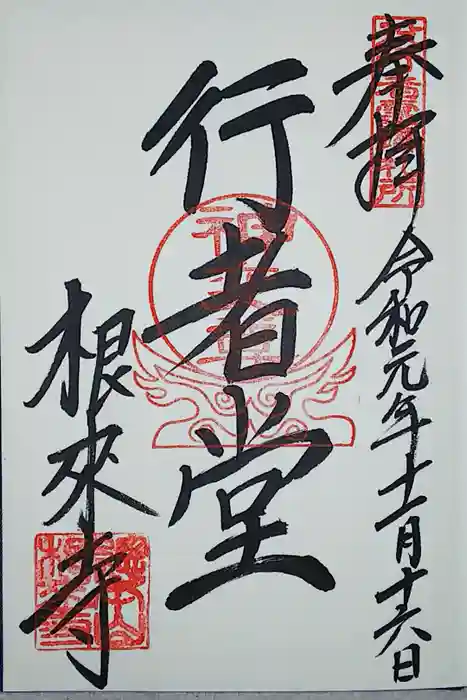 奉拝
令和元年十一月十六日
行者堂
根来寺